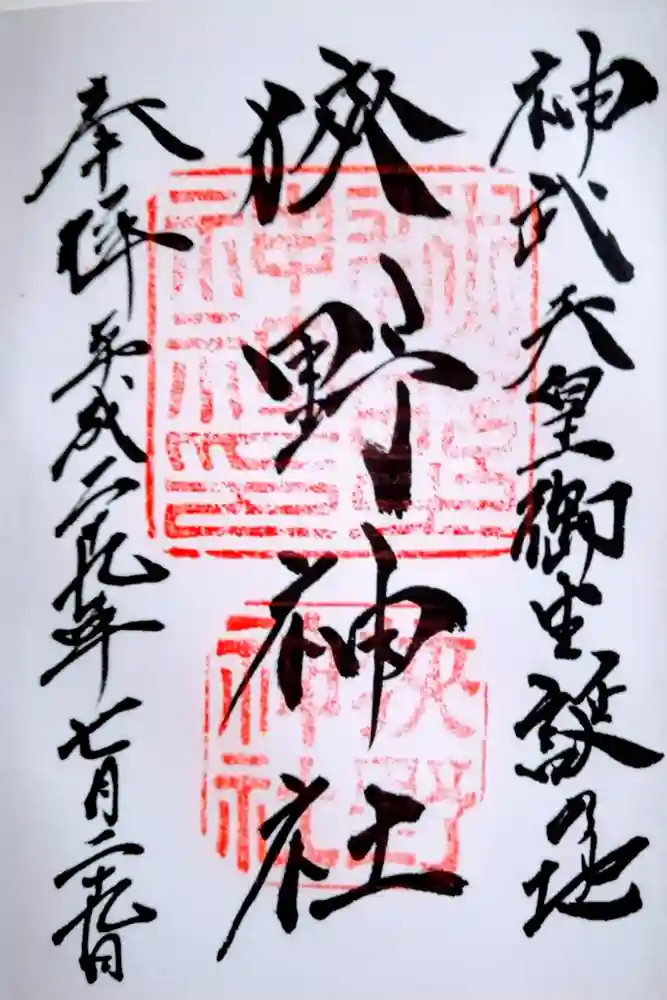 神武天皇御生誕の地
狹野神社
奉拝 平成二十九年七月二十九日
狭野神社